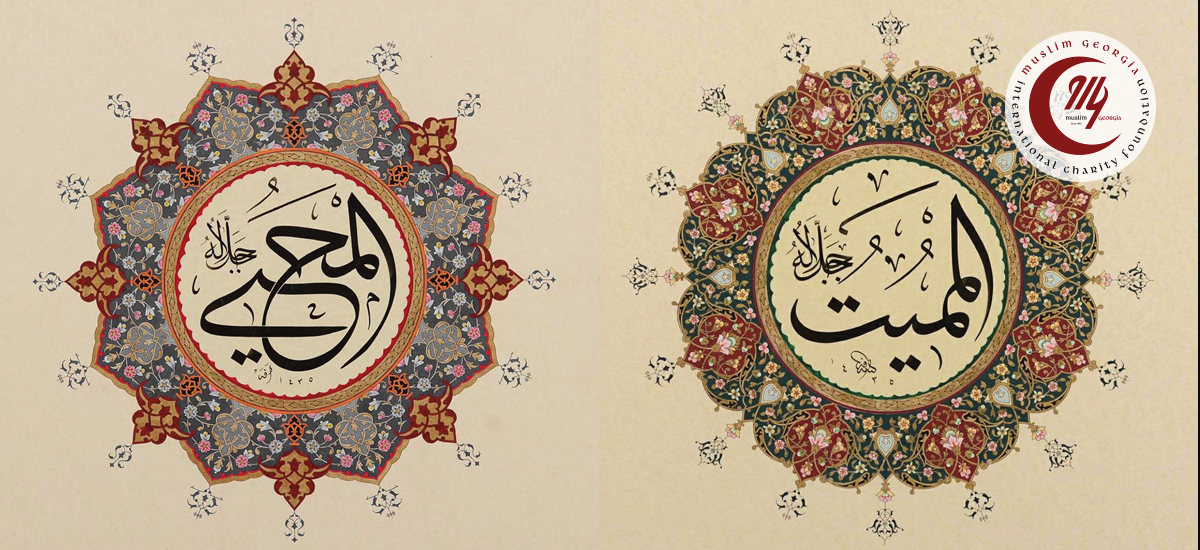 المحيي
جل جلاله
١٤٣٥
المميت
جل جلاله
muslim GEORGIA
international charity foundation
muslim Georgia